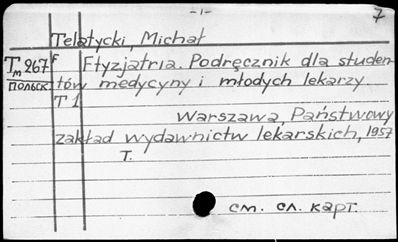 -1-
7
Telatycki, Michał
Tm 267 F Ftyzjatria. Podręcznik dla studen-
польск tów medycyny i młodych lekarzy
T 1
Warszawa, Państwowy
zakład wydawnictw lekarskich, 1957
T.
см. сл. карт.